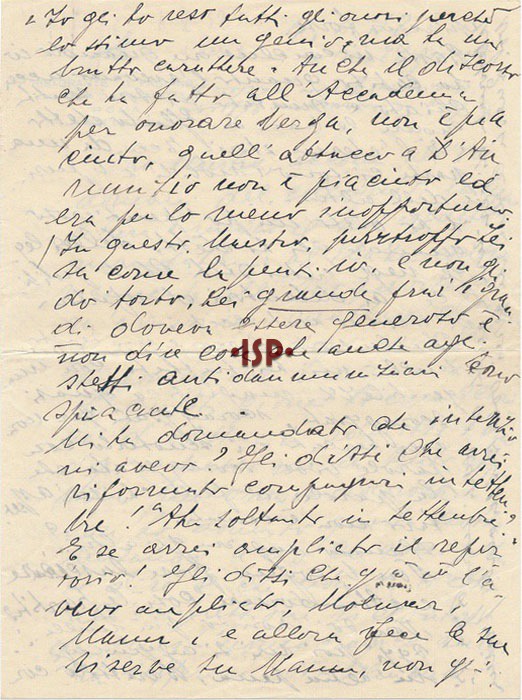 Io gli ho reso tutti gli onori perché
lo stimo un genio, ma ha un
brutto carattere. Anche il discorso
che ha fatto all'Accademia
per onorare Verga, non è pia
ciuto, quell'attacco a D'An
nunzio non è piaciuto ed
era per lo meno inopportuno.
In questo, Maestro, purtroppo Lei
sa come la penti io, e non gli
do torto. Lei grande fra i gran
di doveva essere generoso e
non dire che anche agli
stessi antidannunziani sono
spiaciute.
Mi ha domandato che intenzio
ni avevo? Gli dissi che avrei
riformato compagnia in settem
bre! "Ah soltanto in settembre?"
E se avrei ampliato il reper
torio! Gli dissi che già l'a
vevo ampliato, Molnar,
Mann, e allora fece le sue
riserve su Mann, non gli
·ISP·